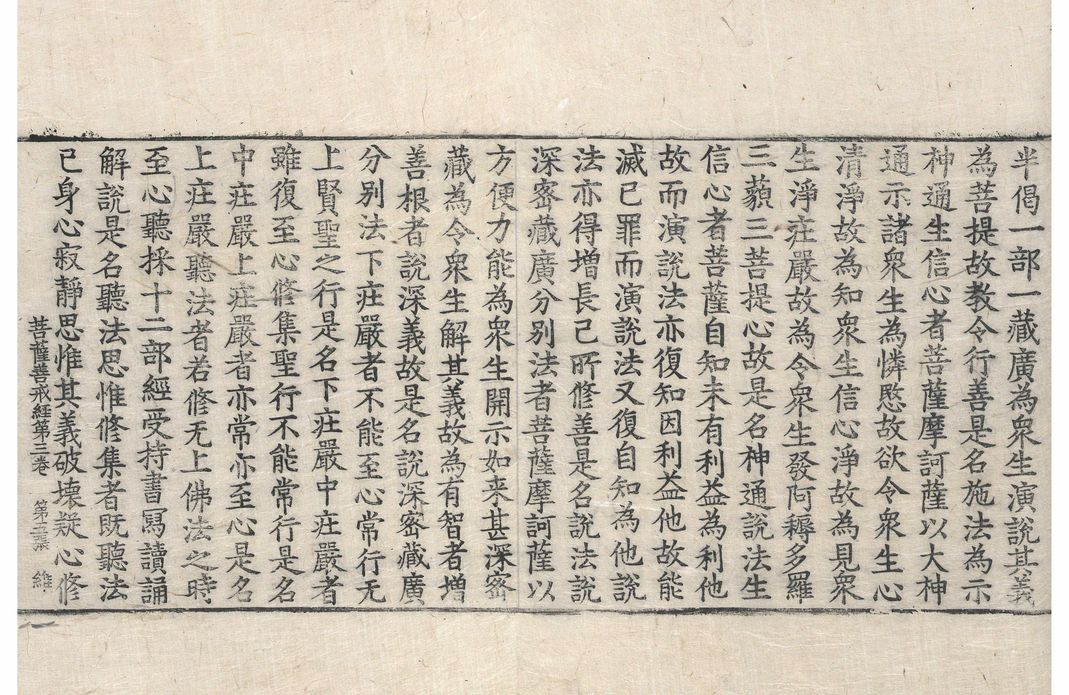 半偈一部一藏廣為衆生演說其義
為菩提故教令行善是名施法為示
神通生信心者菩薩摩訶薩以大神
通示諸衆生為憐愍故欲令衆生心
清淨故為知衆生信心淨故為見衆
生淨庄嚴故為令衆生發阿耨多羅
三藐三菩提心故是名神通說法生
信心者菩薩自知未有利益為利他
故而演說法亦復知因利益他故能
滅已罪而演說法又復自知為他說
法亦得增長已所修善是名說法說
深密藏廣分别法者菩薩摩訶薩以
方便力能為衆生開示如来甚深密
藏為令衆生解其義故為有智者增
善根者說深義故是名說深密藏廣
分别法下庄嚴者不能至心常行无
上賢聖之行是名下庄嚴中庄嚴者
雖復至心修集聖行不能常行是名
中庄嚴上庄嚴者亦常亦至心是名
上庄嚴聽法者若修无上佛法之時
至心聽採十二部經受持書寫讀誦
解說是名聽法思惟修集者既聽法
已身心寂靜思惟其義破壊疑心修
菩薩善戒経第三卷 第五張 維